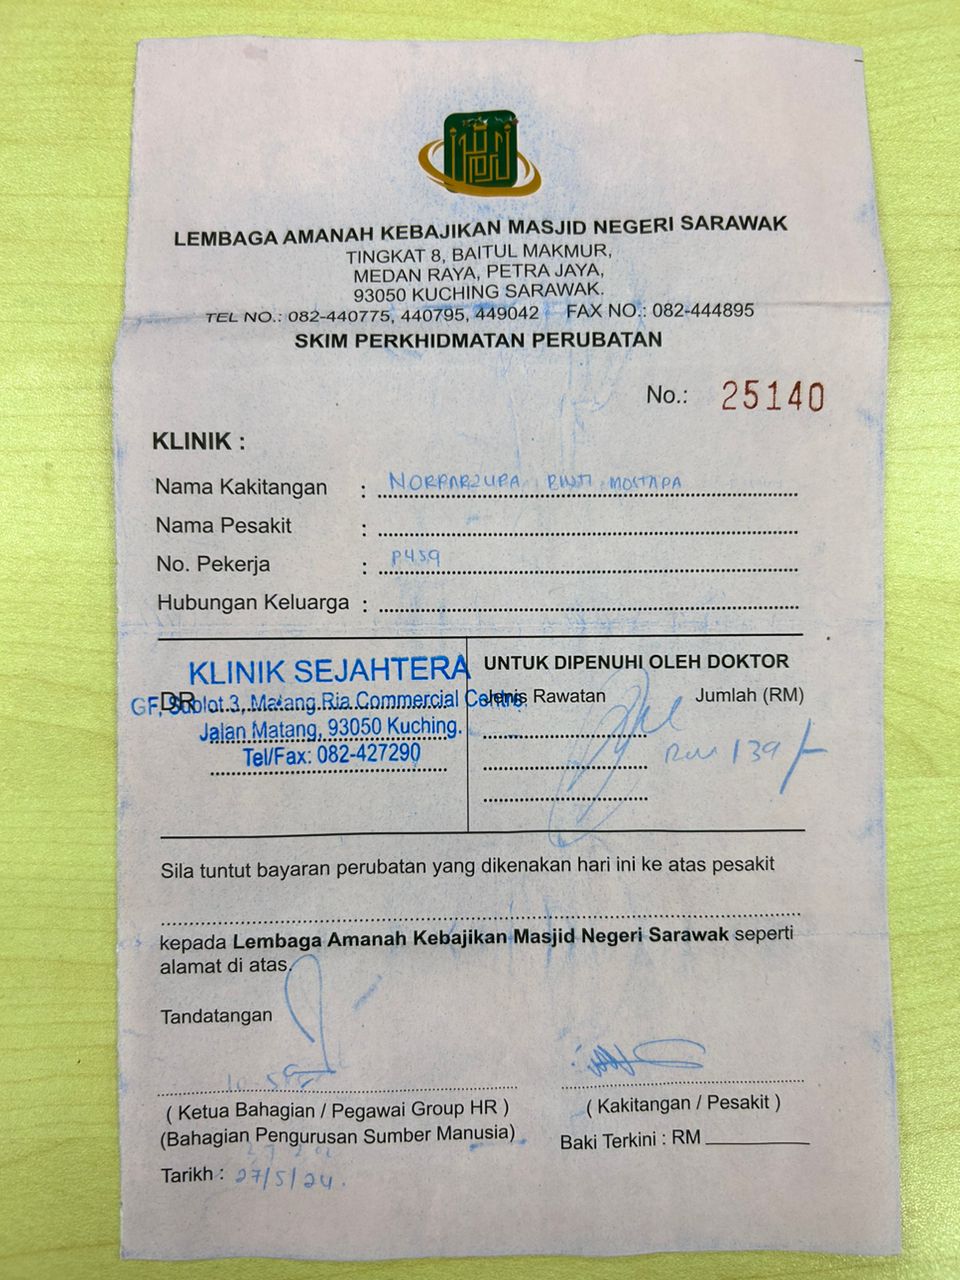 LEMBAGA AMANAH KEBAJIKAN MASJID NEGERI SARAWAK
TINGKAT 8, BAITUL MAKMUR,
MEDAN RAYA, PETRA JAYA,
93050 KUCHING SARAWAK.
TEL NO.: 082-440775, 440795, 449042 FAX NO.: 082-444895
SKIM PERKHIDMATAN PERUBATAN
No.: 25140
KLINIK :
Nama Kakitangan : BINTI MOSTAPA
Nama Pesakit :
No. Pekerja : P459
Hubungan Keluarga :
KLINIK SEJAHTERA
GF, Sublot 3, Matang Ria Commercial Centre,
Jalan Matang, 93050 Kuching.
Tel/Fax: 082-427290
DR
UNTUK DIPENUHI OLEH DOKTOR
Jenis Rawatan Jumlah (RM)
RM 139/-
Sila tuntut bayaran perubatan yang dikenakan hari ini ke atas pesakit
kepada Lembaga Amanah Kebajikan Masjid Negeri Sarawak seperti
alamat di atas.
Tandatangan
( Ketua Bahagian / Pegawai Group HR ) ( Kakitangan / Pesakit )
(Bahagian Pengurusan Sumber Manusia) Baki Terkini : RM
Tarikh : 27/5/24.